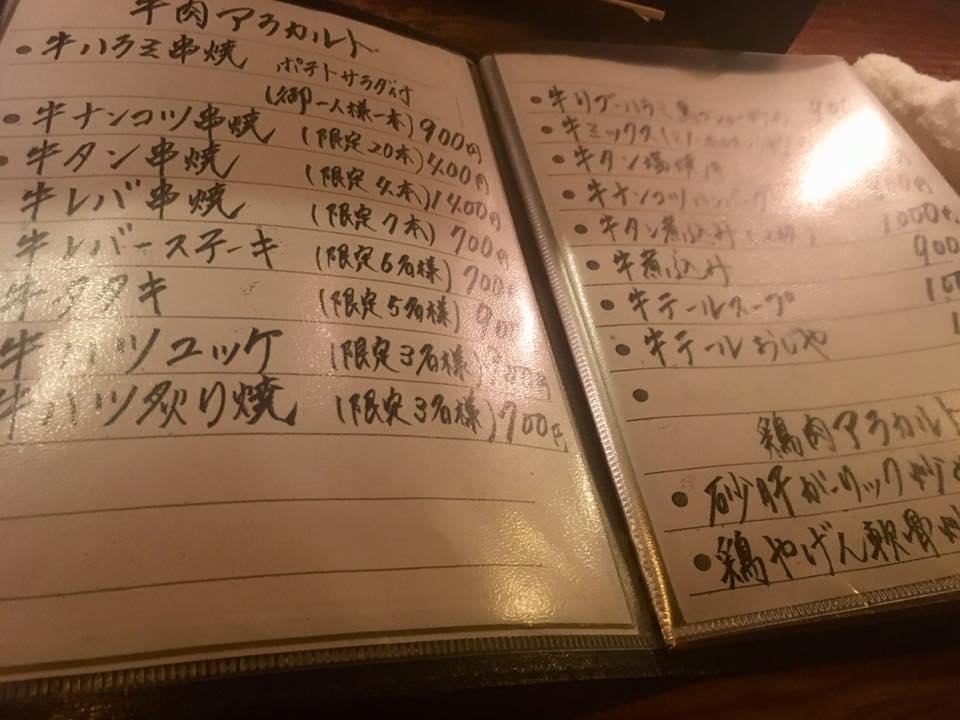 牛肉アラカルト
• 牛ハラミ串焼 ポテトサラダ付
(御一人様一本) 900円
• 牛ナンコツ串焼 (限定20本) 400円
• 牛タン串焼 (限定4本) 1400円
牛レバ串焼 (限定7本) 700円
牛レバーステーキ (限定6名様) 900円
牛タタキ (限定5名様)
牛ハツユッケ (限定3名様)
牛ハツ炙り焼 (限定3名様) 700円
• 牛リブ・ハラミ
• 牛ミックス
• 牛タン塩焼
• 牛ナンコツハンバーグ
• 牛タン煮込み 1000円
• 牛煮込み 900
• 牛テールスープ
• 牛テールおじや
•
鶏肉アラカルト
• 砂肝ガーリック炒め
• 鶏やげん軟骨